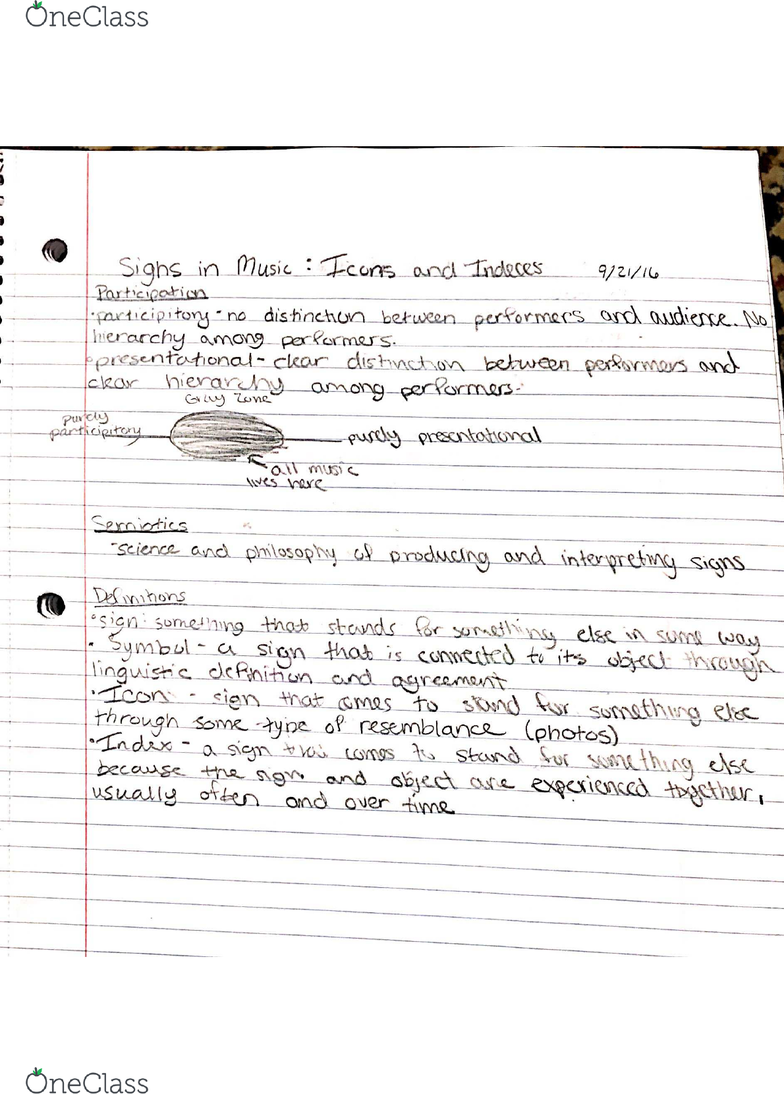 OneClass
Sighs in Music : Icons and Indeces 9/21/16
Participation
•participitory - no distinction between performers and audience. No
hierarchy among performers.
•presentational - clear distinction between performers and
clear hierarchy among performers.
Gray Zone
purely
participitory
purely presentational
all music
lives here
Semiotics
-science and philosophy of producing and interpreting signs
Definitions
•sign: something that stands for something else in some way
•Symbol - a sign that is connected to its object through
linguistic definition and agreement
•Icon - sign that comes to stand for something else
through some type of resemblance (photos)
•Index - a sign that comes to stand for something else
because the sign and object are experienced together,
usually often and over time
OneClass